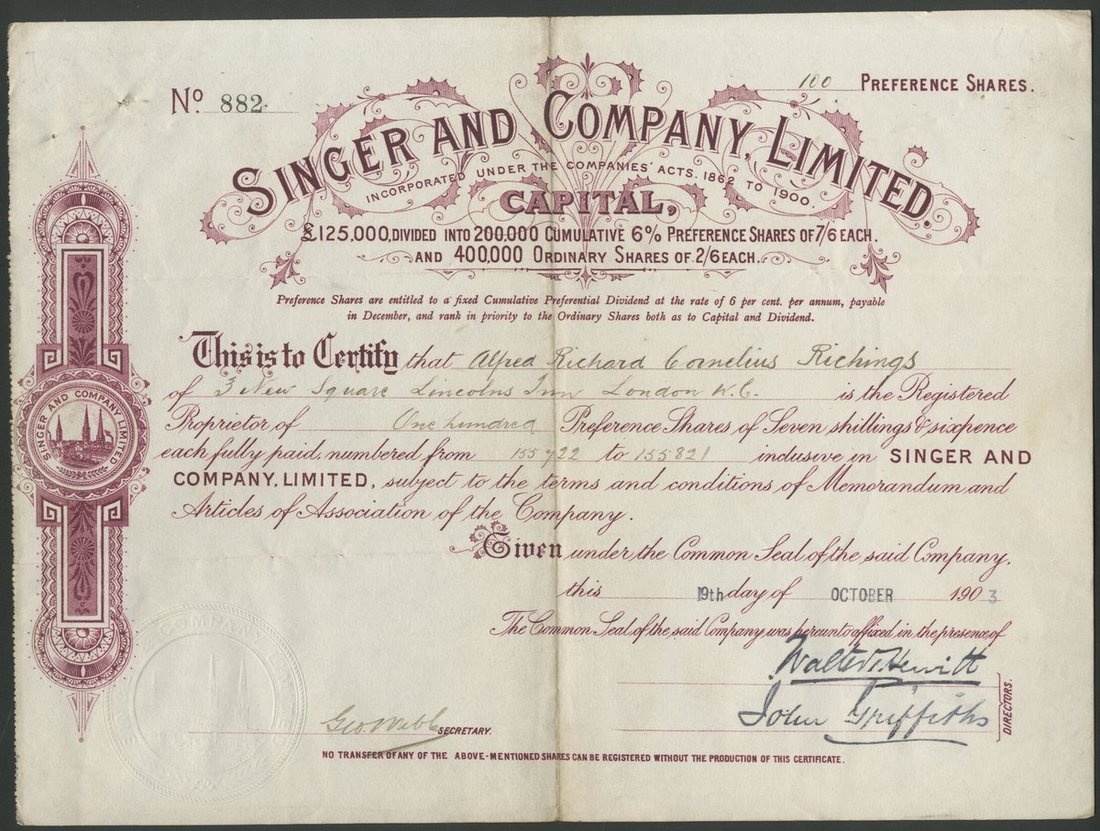 Nº 882
100 PREFERENCE SHARES.
SINGER AND COMPANY, LIMITED.
INCORPORATED UNDER THE COMPANIES' ACTS. 1862 TO 1900.
CAPITAL,
£125,000, DIVIDED INTO 200,000 CUMULATIVE 6% PREFERENCE SHARES OF 7/6 EACH.
AND 400,000 ORDINARY SHARES OF 2/6 EACH.
Preference Shares are entitled to a fixed Cumulative Preferential Dividend at the rate of 6 per cent. per annum, payable
in December, and rank in priority to the Ordinary Shares both as to Capital and Dividend.
This is to Certify that Alfred Richard Cornelius Richings
of 3 New Square Lincolns Inn London W.C. is the Registered
Proprietor of One hundred Preference Shares of Seven shillings & sixpence
each fully paid, numbered from 155722 to 155821 inclusive in SINGER AND
COMPANY, LIMITED, subject to the terms and conditions of Memorandum and
Articles of Association of the Company.
Given under the Common Seal of the said Company,
this 19th day of OCTOBER 1903
The Common Seal of the said Company was hereunto affixed in the presence of
Walter Hewitt
John Griffiths
DIRECTORS.
Geo Webb SECRETARY.
NO TRANSFER OF ANY OF THE ABOVE-MENTIONED SHARES CAN BE REGISTERED WITHOUT THE PRODUCTION OF THIS CERTIFICATE.
SINGER AND COMPANY LIMITED
COMPANY